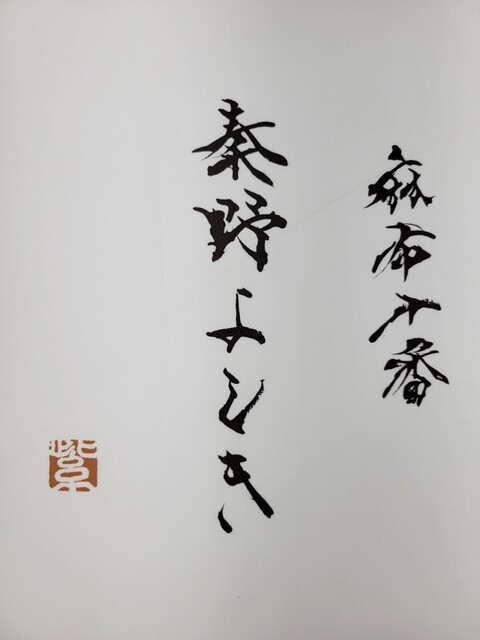 麻布十番
秦野よしき
紫